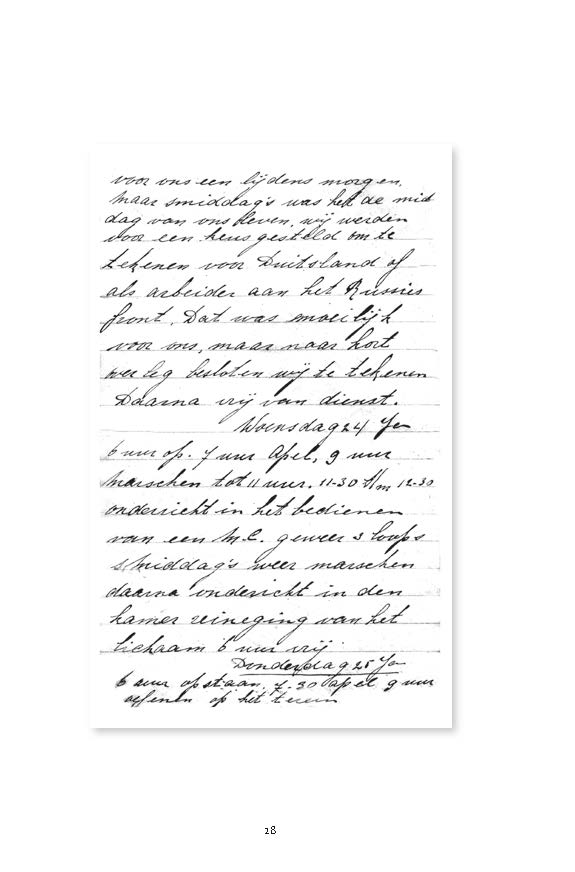 voor ons een lijdens morgen.
maar smiddag's was het de mid
dag van ons leven, wij werden
voor een keus gesteld om te
tekenen voor Duitsland of
als arbeider aan het Russies
front. Dat was moeilijk
voor ons, maar naar kort
overleg besloten wij te tekenen
Daarna vrij van dienst.
Woensdag 24 Ja
6 uur op. 7 uur Apel, 9 uur
marschen tot 11 uur. 11-30 t/m 12-30
onderricht in het bedienen
van een M.C. geweer 3 loops
smiddag's weer marschen
daarna ondericht in den
kamer reineging van het
lichaam 6 uur vrij.
Donderdag 25 Ja
6 uur opstaan, 7.30 apel 9 uur
oefenen op het terrein
28